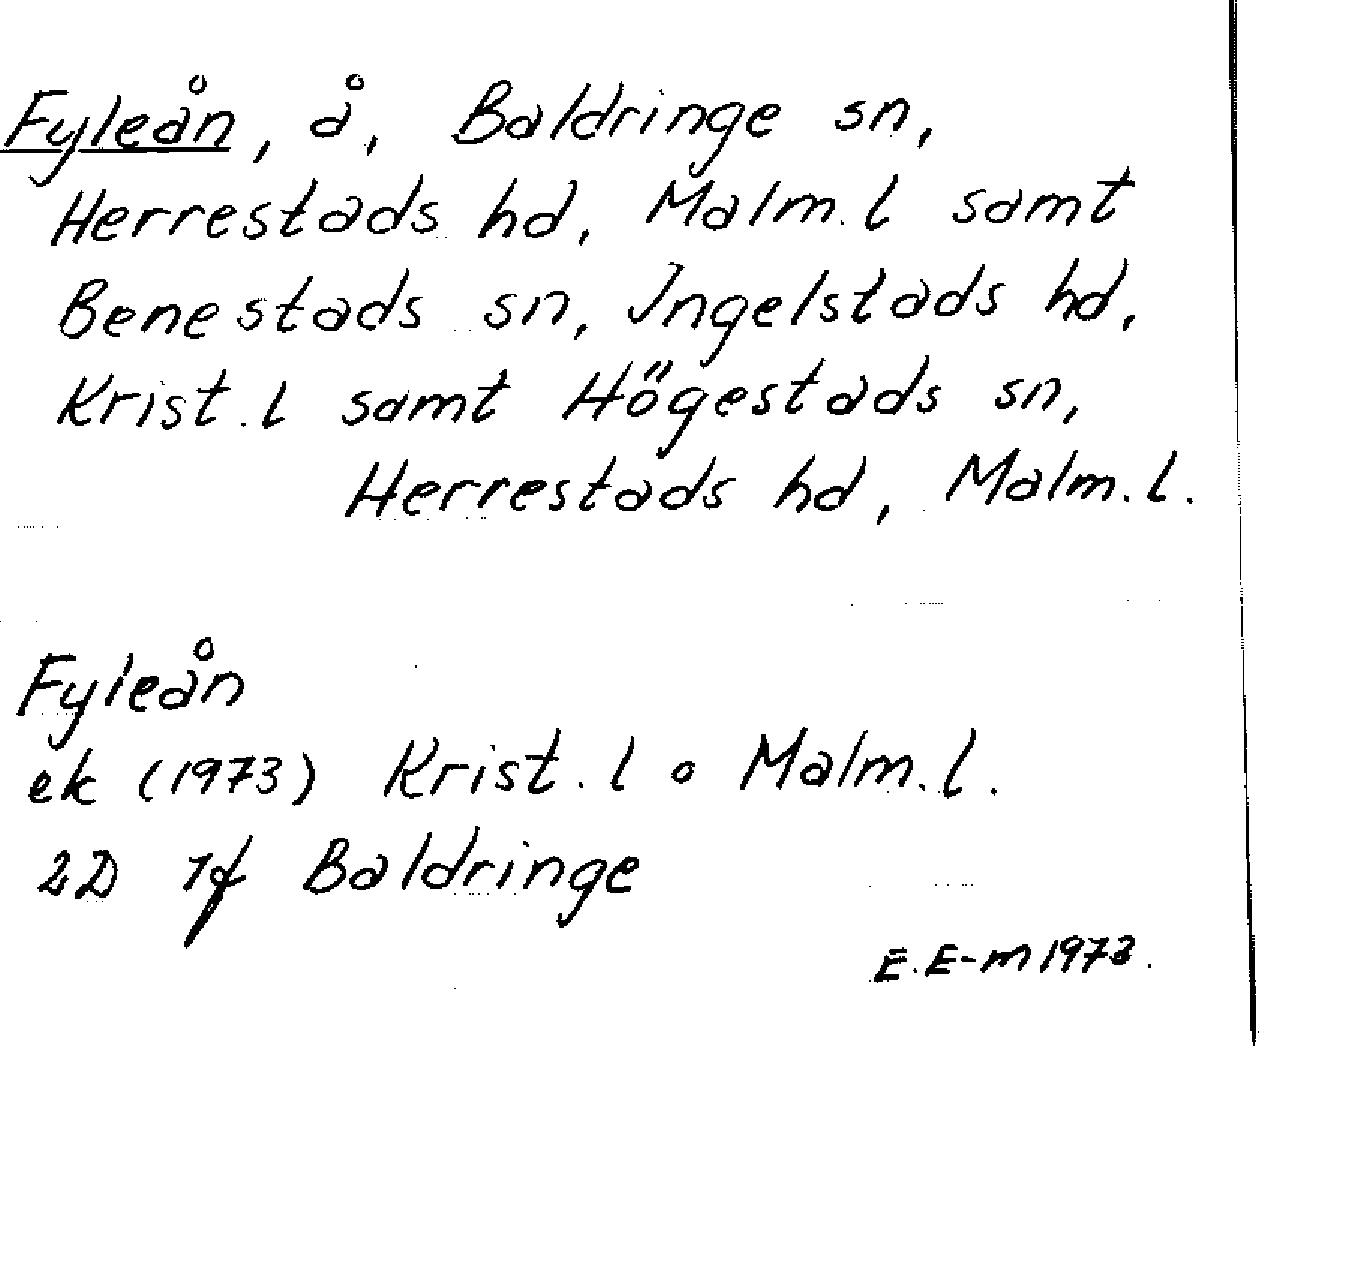 Fyleån, å, Baldringe sn,
Herrestads hd, Malm.l samt
Benestads sn, Ingelstads hd,
Krist.l samt Högestads sn,
Herrestads hd, Malm.l.
Fyleån
ek (1973) Krist.l o Malm.l.
2D 1f Baldringe
E.E-m 1973.